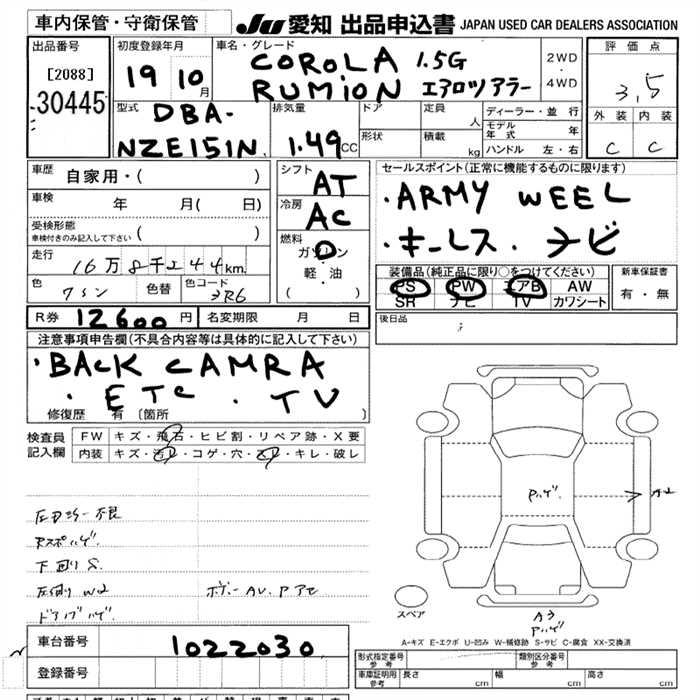 車内保管・守衛保管
JU 愛知 出品申込書 JAPAN USED CAR DEALERS ASSOCIATION
出品番号 初度登録年月 車名・グレード 評価点
[2088]
30445
19 10月
COROLA 1.5G
RUMION エアロツアラー
2WD
4WD
3,5
外装 内装
C C
型式 排気量 ドア 定員 人 ディーラー・並行
DBA-
NZE151N
1.49 CC
形状 積載 kg
モデル年式 年
ハンドル 左・右
車歴 自家用・( )
シフト AT
セールスポイント(正常に機能するものに限ります)
・ARMY WEEL
・キーレス・ナビ
車検 年 月( 日)
冷房 AC
受検形態
車検付きのみ記入して下さい ( )
燃料 ガソリン
軽・油
( )
走行 16万8千244km
色 色替 色コード
3R6
装備品(純正品に限り○をつけてください)
PS PW エアB AW
SR ナビ TV カワシート
新車保証書
有・無
R券 12600円 名変期限 月 日
後日品
注意事項申告欄(不具合内容等は具体的に記入して下さい)
・BACK CAMRA
・ETC ・TV
修復歴 有 [箇所 ]
検査員記入欄
FW キズ・飛石・ヒビ割・リペア跡・X要
内装 キズ・汚れ・コゲ・穴・スレ・キレ・破レ
Pハゲ
A2
下回りS
左回りW2
ボデーAV.Pアセ
ドアノブハゲ
スペア
A3
Pハゲ
A-キズ E-エクボ U-凹み W-補修跡 S-サビ C-腐食 XX-交換済
車台番号 1022030
登録番号
形式指定番号 参考 類別区分番号 参考
車庫証明用 参考 長さ cm 幅 cm 高さ cm